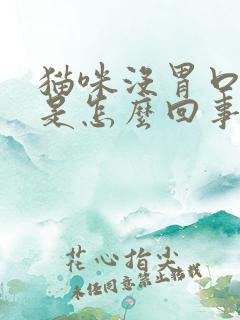 猫咪沒胃口
是怎麼回事
花心指尖
未经同意禁止转载